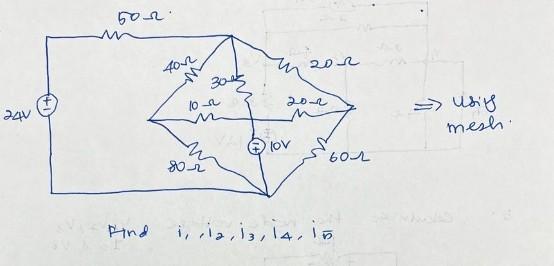 50Ω
40Ω
30Ω
20Ω
24V
10Ω
20Ω
⇒ using
mesh.
10V
80Ω
60Ω
Find i, , i2, i3, i4, i5